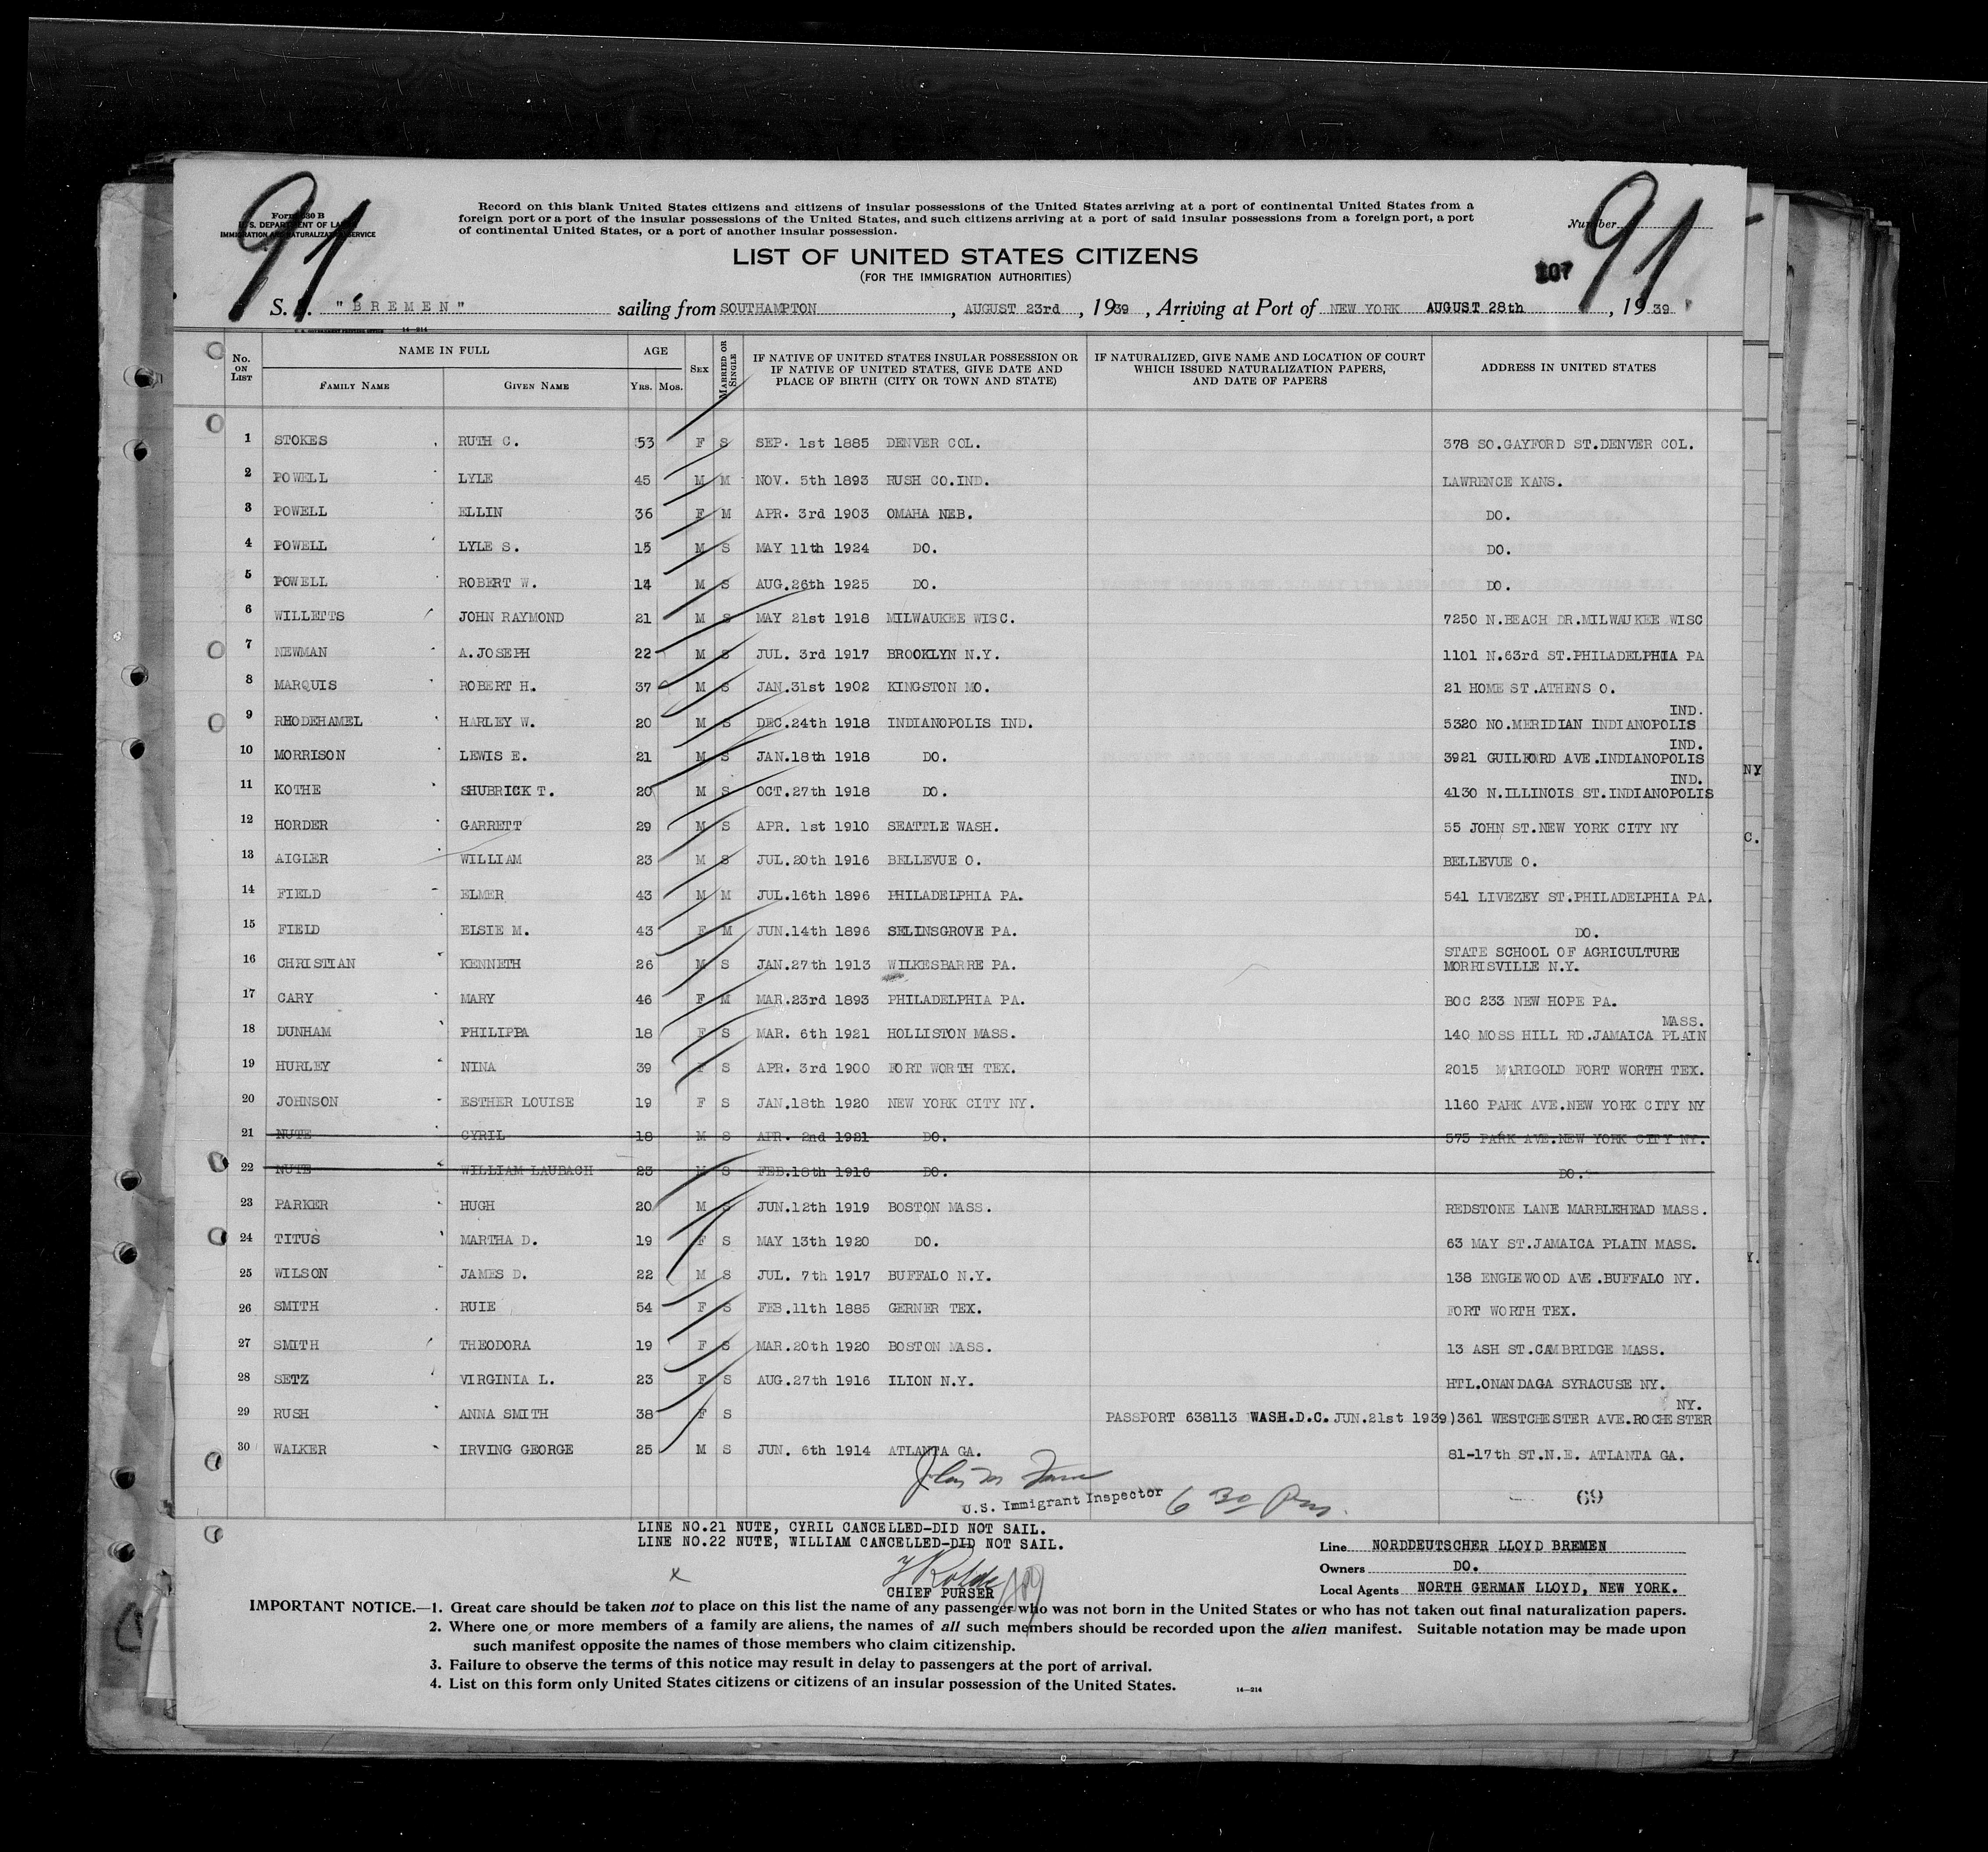 91
91
Form 630 B
U. S. DEPARTMENT OF LABOR
IMMIGRATION AND NATURALIZATION SERVICE
Record on this blank United States citizens and citizens of insular possessions of the United States arriving at a port of continental United States from a
foreign port or a port of the insular possessions of the United States, and such citizens arriving at a port of said insular possessions from a foreign port, a port
of continental United States, or a port of another insular possession.
Number
LIST OF UNITED STATES CITIZENS
(FOR THE IMMIGRATION AUTHORITIES)
107
S. S. "BREMEN" sailing from SOUTHAMPTON, AUGUST 23rd, 1939, Arriving at Port of NEW YORK AUGUST 28th, 1939
U. S. GOVERNMENT PRINTING OFFICE 14-214
No. ON LIST
NAME IN FULL
FAMILY NAME
GIVEN NAME
AGE
YRS. MOS.
SEX
MARRIED OR SINGLE
IF NATIVE OF UNITED STATES INSULAR POSSESSION OR
IF NATIVE OF UNITED STATES, GIVE DATE AND
PLACE OF BIRTH (CITY OR TOWN AND STATE)
IF NATURALIZED, GIVE NAME AND LOCATION OF COURT
WHICH ISSUED NATURALIZATION PAPERS,
AND DATE OF PAPERS
ADDRESS IN UNITED STATES
1 STOKES RUTH C. 53 F S SEP. 1st 1885 DENVER COL. 378 SO.GAYFORD ST.DENVER COL.
2 POWELL LYLE 45 M M NOV. 5th 1893 RUSH CO.IND. LAWRENCE KANS.
3 POWELL ELLIN 36 F M APR. 3rd 1903 OMAHA NEB. DO.
4 POWELL LYLE S. 15 M S MAY 11th 1924 DO. DO.
5 POWELL ROBERT W. 14 M S AUG.26th 1925 DO. DO.
6 WILLETTS JOHN RAYMOND 21 M S MAY 21st 1918 MILWAUKEE WISC. 7250 N.BEACH DR.MILWAUKEE WISC
7 NEWMAN A.JOSEPH 22 M S JUL. 3rd 1917 BROOKLYN N.Y. 1101 N.63rd ST.PHILADELPHIA PA
8 MARQUIS ROBERT H. 37 M S JAN.31st 1902 KINGSTON MO. 21 HOME ST.ATHENS O.
IND.
9 RHODEHAMEL HARLEY W. 20 M S DEC.24th 1918 INDIANOPOLIS IND. 5320 NO.MERIDIAN INDIANOPOLIS
IND.
10 MORRISON LEWIS E. 21 M S JAN.18th 1918 DO. 3921 GUILFORD AVE.INDIANOPOLIS
IND.
11 KOTHE SHUBRICK T. 20 M S OCT.27th 1918 DO. 4130 N.ILLINOIS ST.INDIANOPOLIS
12 HORDER GARRETT 29 M S APR. 1st 1910 SEATTLE WASH. 55 JOHN ST.NEW YORK CITY NY
13 AIGLER WILLIAM 23 M S JUL.20th 1916 BELLEVUE O. BELLEVUE O.
14 FIELD ELMER 43 M M JUL.16th 1896 PHILADELPHIA PA. 541 LIVEZEY ST.PHILADELPHIA PA.
15 FIELD ELSIE M. 43 F M JUN.14th 1896 SELINSGROVE PA. DO.
STATE SCHOOL OF AGRICULTURE
16 CHRISTIAN KENNETH 26 M S JAN.27th 1913 WILKESBARRE PA. MORRISVILLE N.Y.
17 CARY MARY 46 F M MAR.23rd 1893 PHILADELPHIA PA. BOC 233 NEW HOPE PA.
MASS.
18 DUNHAM PHILIPPA 18 F S MAR. 6th 1921 HOLLISTON MASS. 140 MOSS HILL RD.JAMAICA PLAIN
19 HURLEY NINA 39 F S APR. 3rd 1900 FORT WORTH TEX. 2015 MARIGOLD FORT WORTH TEX.
20 JOHNSON ESTHER LOUISE 19 F S JAN.18th 1920 NEW YORK CITY NY. 1160 PARK AVE.NEW YORK CITY NY
21 NUTE CYRIL 18 M S APR. 2nd 1921 DO. 575 PARK AVE.NEW YORK CITY NY.
22 NUTE WILLIAM LAUBACH 23 M S FEB.18th 1916 DO. DO.
23 PARKER HUGH 20 M S JUN.12th 1919 BOSTON MASS. REDSTONE LANE MARBLEHEAD MASS.
24 TITUS MARTHA D. 19 F S MAY 13th 1920 DO. 63 MAY ST.JAMAICA PLAIN MASS.
25 WILSON JAMES D. 22 M S JUL. 7th 1917 BUFFALO N.Y. 138 ENGLEWOOD AVE.BUFFALO NY.
26 SMITH RUIE 54 F S FEB.11th 1885 GERNER TEX. FORT WORTH TEX.
27 SMITH THEODORA 19 F S MAR.20th 1920 BOSTON MASS. 13 ASH ST.CAMBRIDGE MASS.
28 SETZ VIRGINIA L. 23 F S AUG.27th 1916 ILION N.Y. HTL.ONANDAGA SYRACUSE NY.
NY.
29 RUSH ANNA SMITH 38 F S PASSPORT 638113 WASH.D.C. JUN.21st 1939)361 WESTCHESTER AVE.ROCHESTER
30 WALKER IRVING GEORGE 25 M S JUN. 6th 1914 ATLANTA GA. 81-17th ST.N.E. ATLANTA GA.
U.S. Immigrant Inspector 6 30 Pm
69
LINE NO.21 NUTE, CYRIL CANCELLED-DID NOT SAIL.
LINE NO.22 NUTE, WILLIAM CANCELLED-DID NOT SAIL.
x
CHIEF PURSER
Line NORDDEUTSCHER LLOYD BREMEN
Owners DO.
Local Agents NORTH GERMAN LLOYD, NEW YORK.
IMPORTANT NOTICE.—1. Great care should be taken not to place on this list the name of any passenger who was not born in the United States or who has not taken out final naturalization papers.
2. Where one or more members of a family are aliens, the names of all such members should be recorded upon the alien manifest. Suitable notation may be made upon
such manifest opposite the names of those members who claim citizenship.
3. Failure to observe the terms of this notice may result in delay to passengers at the port of arrival.
4. List on this form only United States citizens or citizens of an insular possession of the United States.
14—214
NY
C.
Y.